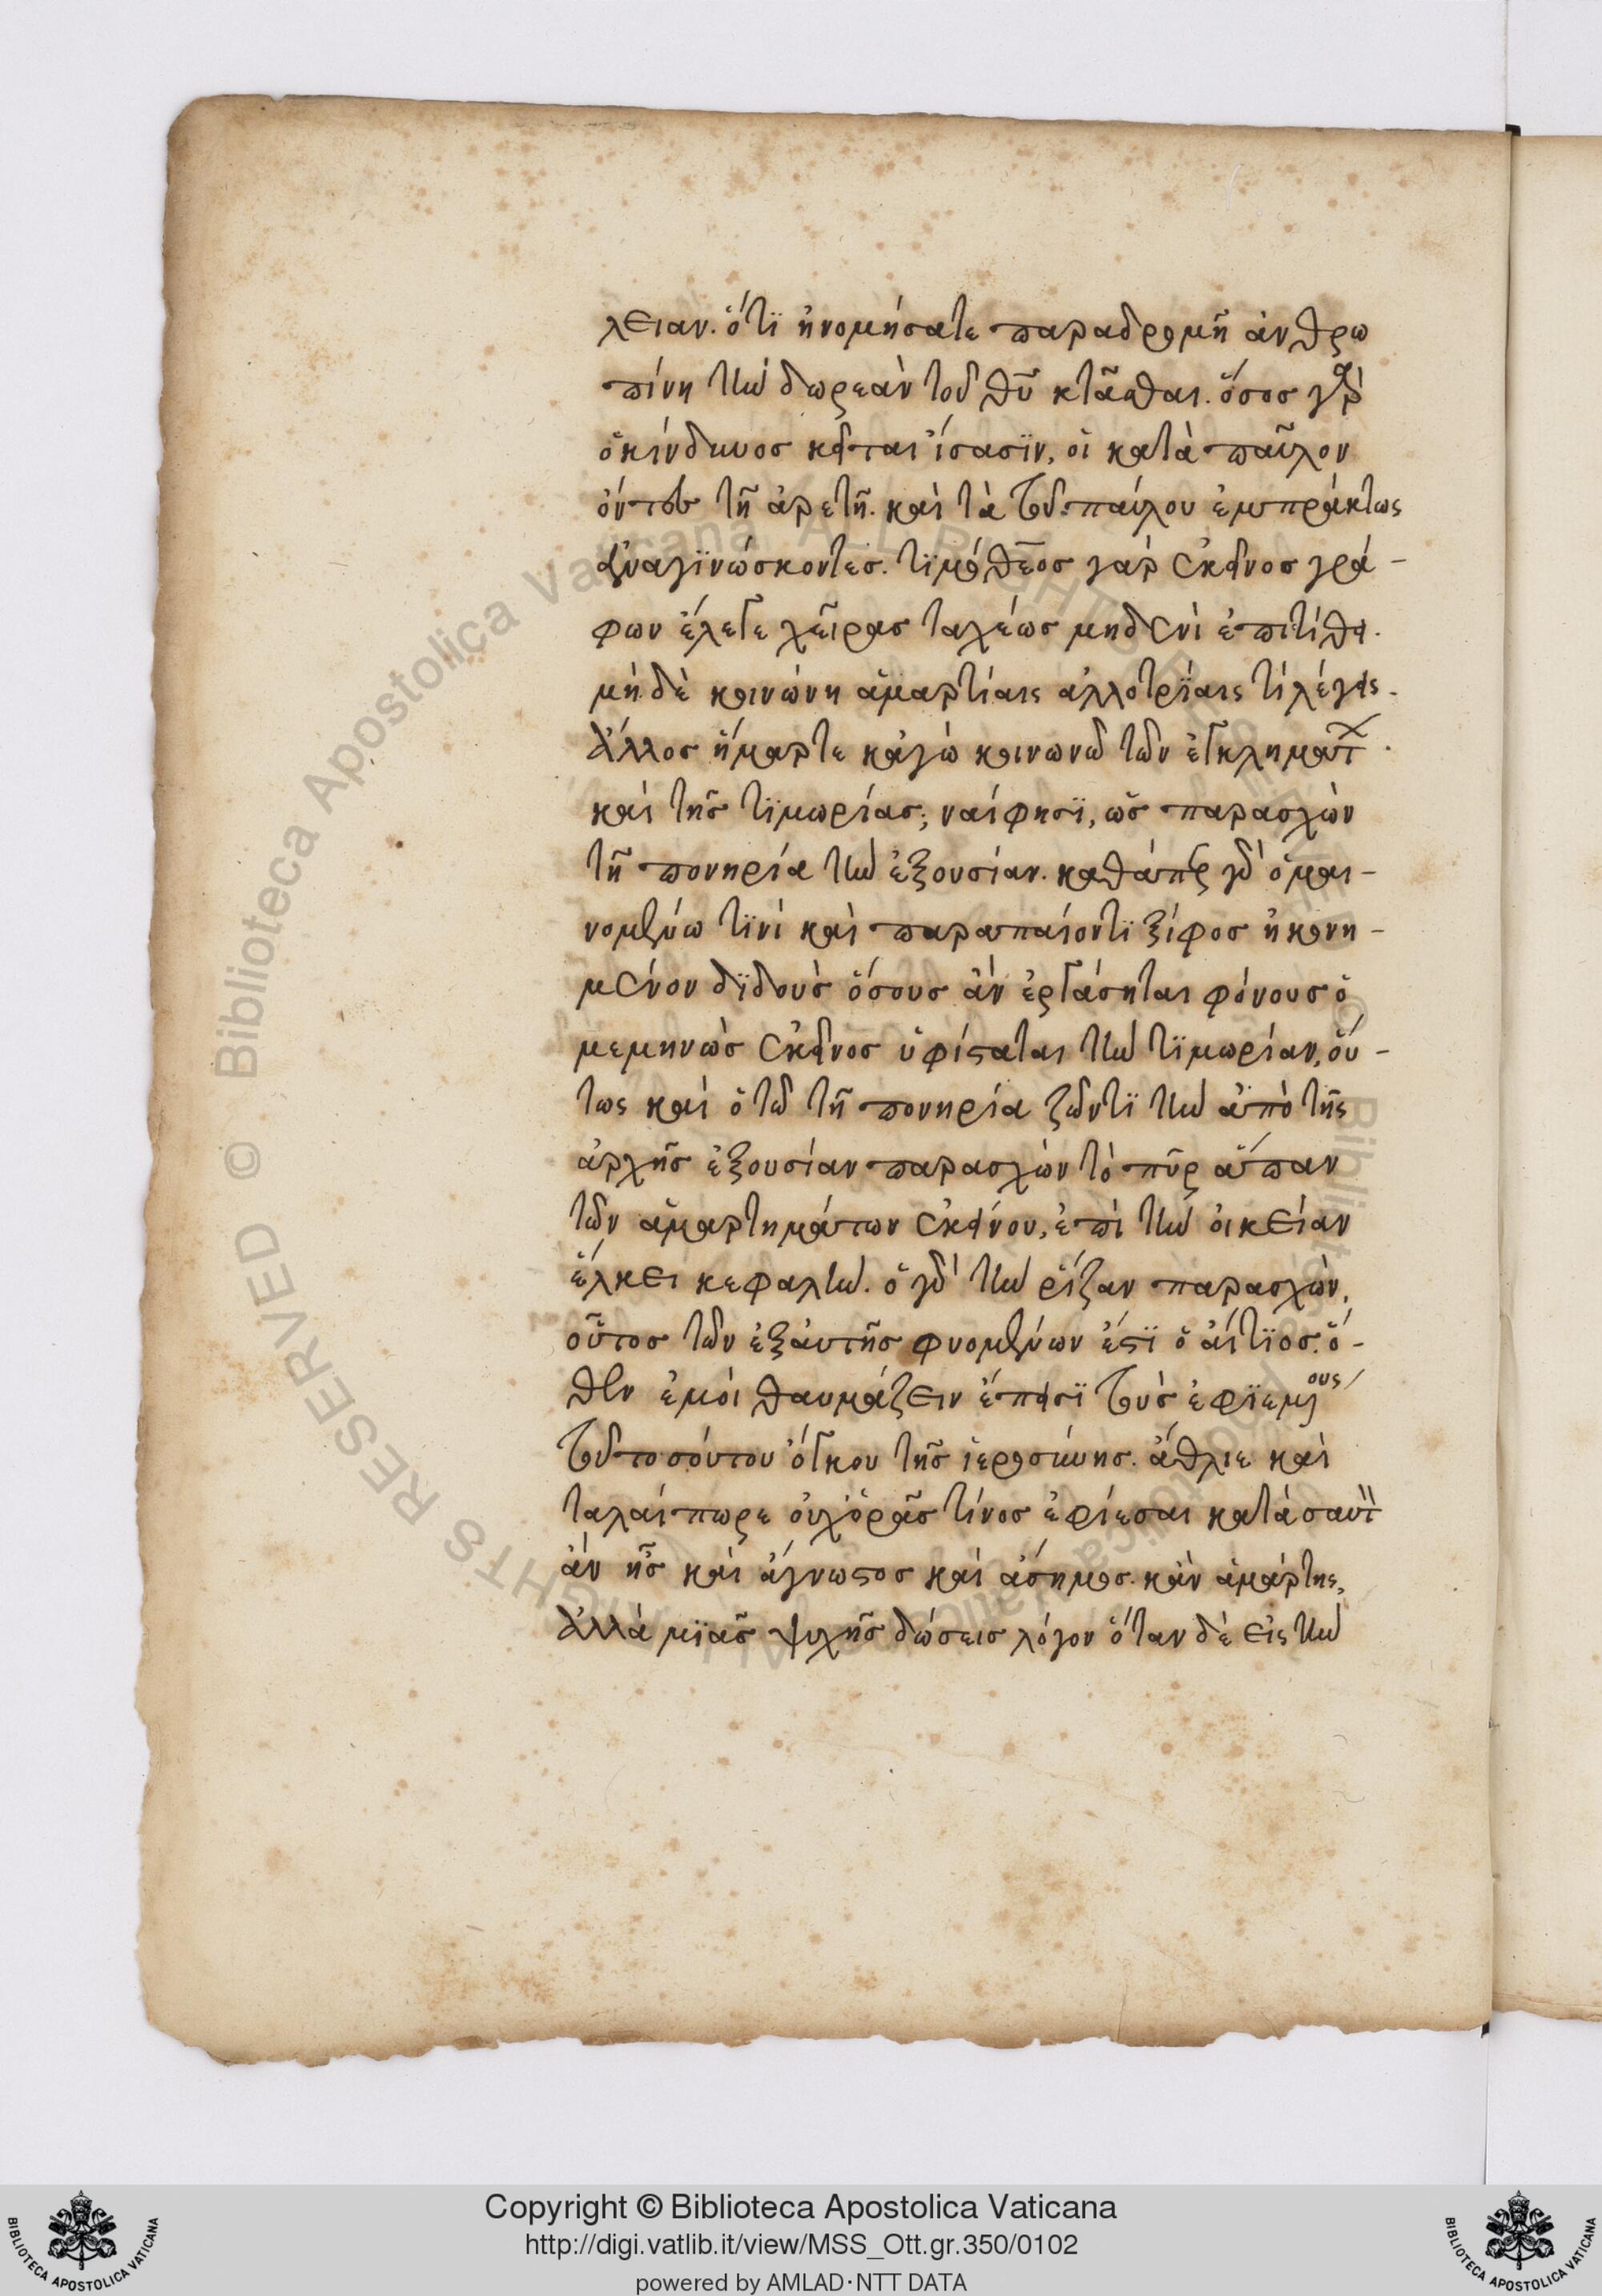 λειαν. ὅτι ἠνομήσατε παραδρομῆ ἀνθρω
πίνη τὴν δωρεὰν τοῦ θυ κτᾶσθαι. ὅσος γὰρ
ὁ κίνδυνος κεῖται ἴσασιν, οἱ κατὰ παῦλον
ὄντες τῆ ἀρετῆ. καὶ τὰ τοῦ παύλου ἐμπράκτως
ἀναγινώσκοντες. τιμόθεος γὰρ ἐκεῖνος γρά-
φων ἔλεγε χεῖρας ταχέως μηδενὶ ἐπιτίθει.
μὴ δὲ κοινώνη ἁμαρτίαις ἀλλοτρίαις τί λέγεις.
ἄλλος ἥμαρτε κἀγὼ κοινωνῶ τῶν ἐγκλημάτ
καὶ τῆς τιμωρίας; ναί φησι, ὡς παρασχὼν
τῆ πονηρία τὴν ἐξουσίαν. καθάπερ γὰρ ὁ μαι-
νομένω τινὶ καὶ παραπαίοντι ξίφος ἠκονη-
μένον διδοὺς ὅσους ἂν ἐργάσηται φόνους ὁ
μεμηνὼς ἐκεῖνος ὑφίσταται τὴν τιμωρίαν, οὕ-
τως καὶ ὁ τῶ τῆ πονηρία ζῶντι τὴν ἀπὸ τῆς
ἀρχῆς ἐξουσίαν παρασχὼν τὸ πῦρ ἅπαν
τῶν ἁμαρτημάτων ἐκείνου, ἐπὶ τὴν οἰκείαν
ἕλκει κεφαλήν. ὁ γὰρ τὴν ῥίζαν παρασχὼν,
οὗτος τῶν ἐξ αὐτῆς φυομένων ἐστὶ ὁ αἴτιος. ὅ-
θεν ἐμοὶ θαυμάζειν ἔπεισι τοὺς ἐφιεμένους
τοῦ τοσούτου ὄγκου τῆς ἱεροσύνης. ἄθλιε καὶ
ταλαίπωρε οὐχ ὁρᾶς τίνος ἐφίεσαι κατὰ σαυτ
ἂν ἦς καὶ ἄγνωστος καὶ ἄσημος. κἂν ἁμάρτης,
ἀλλὰ μιᾶς ψυχῆς δώσεις λόγον ὅταν δὲ εἰς τὴν
Copyright © Biblioteca Apostolica Vaticana
http://digi.vatlib.it/view/MSS_Ott.gr.350/0102
powered by AMLAD·NTT DATA